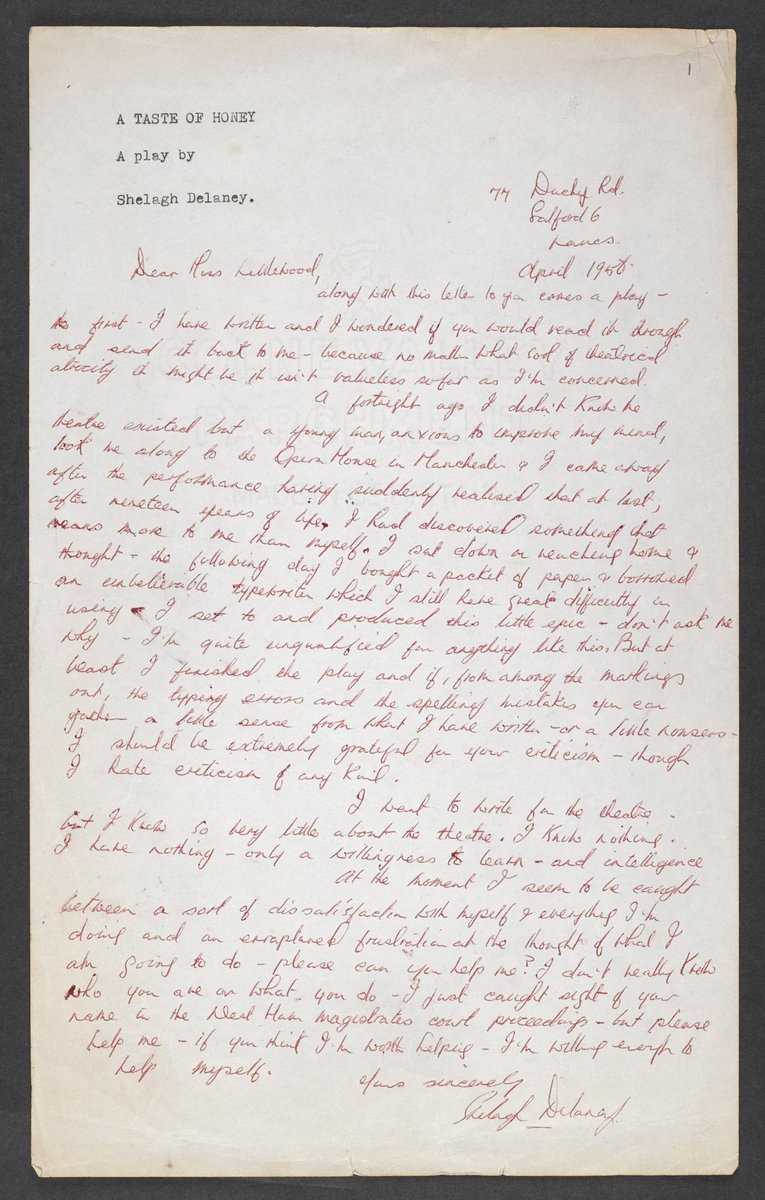 1
A TASTE OF HONEY
A play by
Shelagh Delaney.
77 Duchy Rd.
Salford 6
Lancs.
April 1958.
Dear Miss Littlewood,
along with this letter to you comes a play -
the first - I have written and I wondered if you would read it through
and send it back to me - because no matter what sort of theatrical
atrocity it might be it isn't valueless so far as I'm concerned.
A fortnight ago I didn't know the
theatre existed but a young man, anxious to improve my mind,
took me along to the Opera House in Manchester & I came away
after the performance having suddenly realised that at last,
after nineteen years of life, I had discovered something that
means more to me than myself. I sat down on reaching home &
thought - the following day I bought a packet of paper & borrowed
an unbelievable typewriter which I still have great difficulty in
using. I set to and produced this little epic - don't ask me
why - I'm quite unqualified for anything like this. But at
least I finished the play and if, from among the markings
out, the typing errors and the spelling mistakes you can
gather a little sense from what I have written - or a little nonsense -
I should be extremely grateful for your criticism - though
I hate criticism of any kind.
I want to write for the theatre -
but I know so very little about the theatre. I know nothing.
I have nothing - only a willingness to learn - and intelligence
At the moment I seem to be caught
between a sort of dissatisfaction with myself & everything I'm
doing and an enraptured frustration at the thought of what I
am going to do - please can you help me? I don't really know
who you are or what you do - I just caught sight of your
name in the West Ham magistrates court proceedings - but please
help me - if you think I'm worth helping - I'm willing enough to
help myself.
Yours sincerely
Shelagh Delaney.